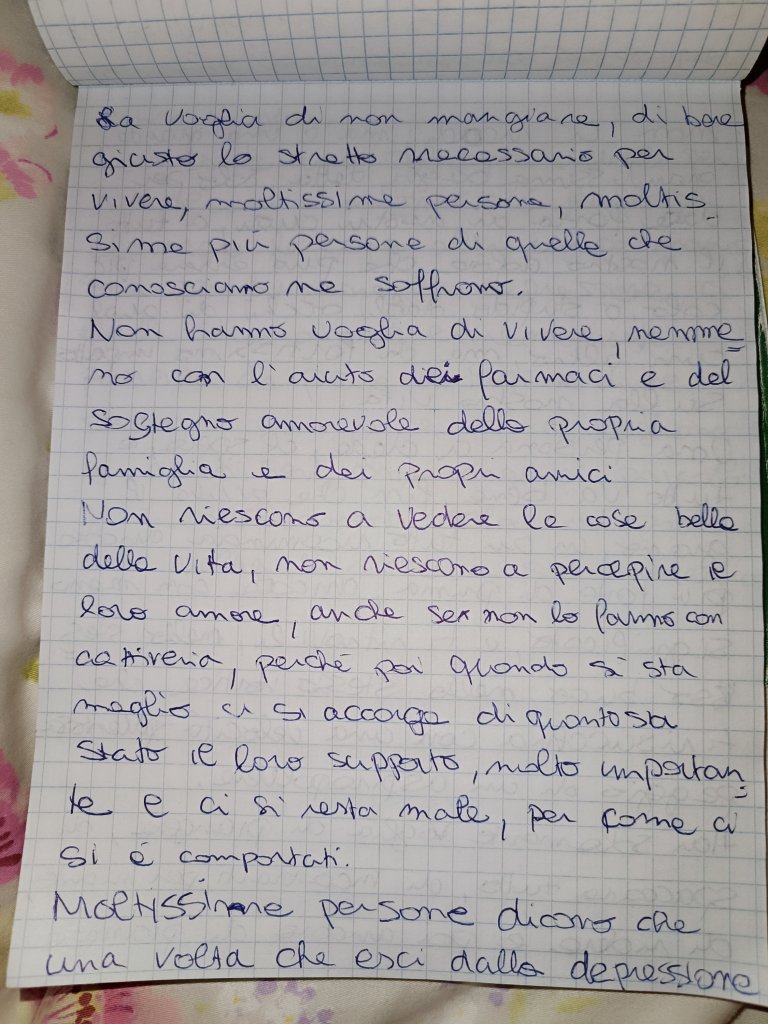 La voglia di non mangiare, di bere
giusto lo stretto necessario per
vivere, moltissime persone, moltis
sime più persone di quelle che
conosciamo ne soffrono.
Non hanno voglia di vivere, nemme=
no con l'aiuto dei farmaci e del
sostegno amorevole della propria
famiglia e dei propri amici
Non riescono a vedere le cose belle
della vita, non riescono a percepire il
loro amore, anche se non lo fanno con
cattiveria, perché poi quando si sta
meglio ci si accorge di quanto sia
stato il loro supporto, molto importan=
te e ci si resta male, per come ci
si é comportati.
Moltissime persone dicono che
una volta che esci dalla depressione